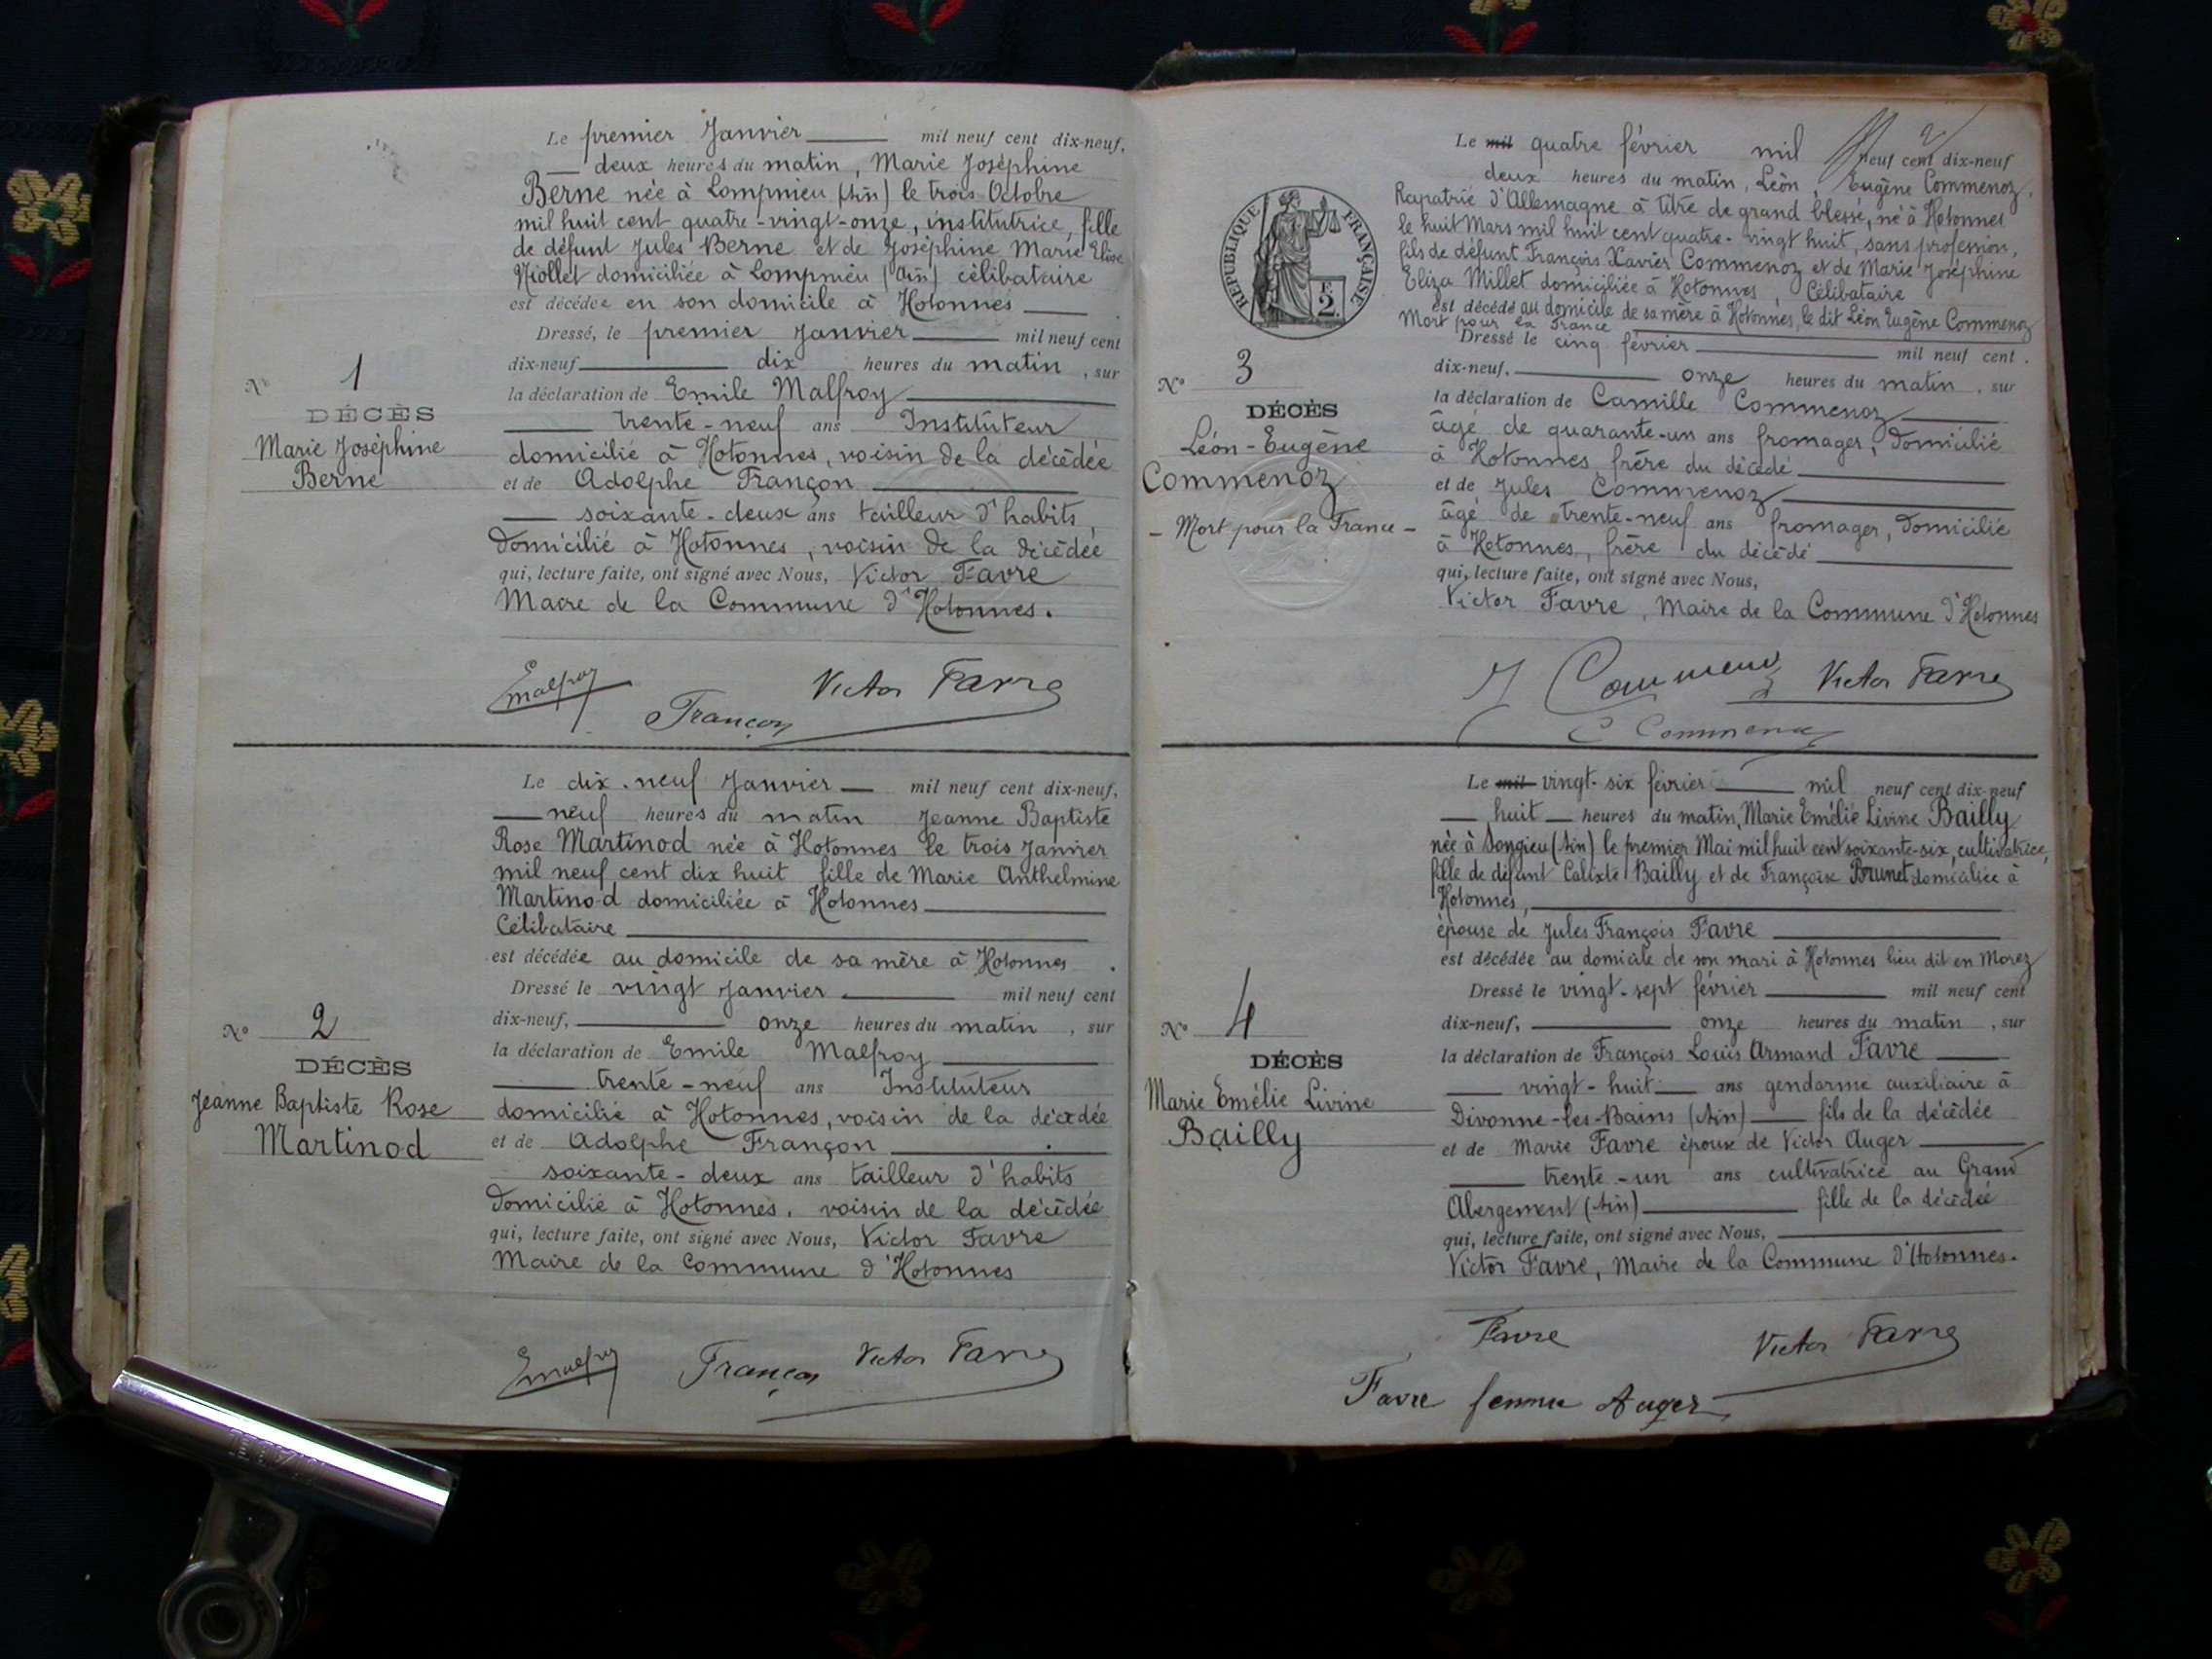 Le premier Janvier mil neuf cent dix-neuf,
deux heures du matin, Marie Joséphine
Berne née à Lompnieu (Ain) le trois Octobre
mil huit cent quatre-vingt-onze, institutrice, fille
de défunt Jules Berne et de Joséphine Marie Elise
domiciliée à Lompnieu (Ain) célibataire
est décédée en son domicile à Hotonnes
Dressé, le premier Janvier mil neuf cent
dix-neuf dix heures du matin, sur
la déclaration de Emile Malfroy
trente-neuf ans Instituteur
domicilié à Hotonnes, voisin de la décédée
et de Adolphe Françon
soixante-deux ans tailleur d'habits,
domicilié à Hotonnes, voisin de la décédée
qui, lecture faite, ont signé avec Nous, Victor Favre
Maire de la Commune d'Hotonnes.
N° 1
DÉCÈS
Marie Joséphine
Berne
Emalfroy
Françon
Victor Favre
Le dix-neuf Janvier mil neuf cent dix-neuf,
neuf heures du matin Jeanne Baptiste
Rose Martinod née à Hotonnes le trois Janvier
mil neuf cent dix huit fille de Marie Anthelmine
Martinod domiciliée à Hotonnes
Célibataire
est décédée au domicile de sa mère à Hotonnes.
Dressé le vingt Janvier mil neuf cent
dix-neuf, onze heures du matin, sur
la déclaration de Emile Malfroy
trente-neuf ans Instituteur
domicilié à Hotonnes, voisin de la décédée
et de Adolphe Françon
soixante-deux ans tailleur d'habits
domicilié à Hotonnes, voisin de la décédée
qui, lecture faite, ont signé avec Nous, Victor Favre
Maire de la Commune d'Hotonnes
N° 2
DÉCÈS
Jeanne Baptiste Rose
Martinod
Emalfroy
Françon
Victor Favre
2
Le mil quatre février mil neuf cent dix-neuf
deux heures du matin, Léon, Eugène Commenoz,
Rapatrié d'Allemagne à titre de grand blessé, né à Hotonnes
le huit Mars mil huit cent quatre-vingt huit, sans profession,
fils de défunt François Xavier Commenoz et de Marie Joséphine
Eliza Millet domiciliée à Hotonnes, Célibataire
est décédé au domicile de sa mère à Hotonnes, le dit Léon Eugène Commenoz
Mort pour la France
Dressé le cinq février mil neuf cent.
dix-neuf, onze heures du matin, sur
la déclaration de Camille Commenoz
âgé de quarante-un ans fromager, domicilié
à Hotonnes, frère du décédé
et de Jules Commenoz
âgé de trente-neuf ans fromager, domicilié
à Hotonnes, frère du décédé
qui, lecture faite, ont signé avec Nous,
Victor Favre, Maire de la Commune d'Hotonnes
RÉPUBLIQUE FRANÇAISE
F.
2
N° 3
DÉCÈS
Léon-Eugène
Commenoz
- Mort pour la France -
J Commenoz
Victor Favre
C Commenoz
Le mil vingt-six février mil neuf cent dix-neuf
huit heures du matin, Marie Emélie Livine Bailly
née à Songieu (Ain) le premier Mai mil huit cent soixante-six, cultivatrice,
fille de défunt Calixte Bailly et de Françoise Brunet domiciliée à
Hotonnes,
épouse de Jules François Favre
est décédée au domicile de son mari à Hotonnes lieu dit en Morez
Dressé le vingt-sept février mil neuf cent
dix-neuf, onze heures du matin, sur
la déclaration de François Louis Armand Favre
vingt-huit ans gendarme auxiliaire à
Divonne-les-Bains (Ain) fils de la décédée
et de Marie Favre épouse de Victor Auger
trente-un ans cultivatrice au Grand
Abergement (Ain) fille de la décédée
qui, lecture faite, ont signé avec Nous,
Victor Favre, Maire de la Commune d'Hotonnes.
N° 4
DÉCÈS
Marie Emélie Livine
Bailly
Favre
Victor Favre
Favre femme Auger